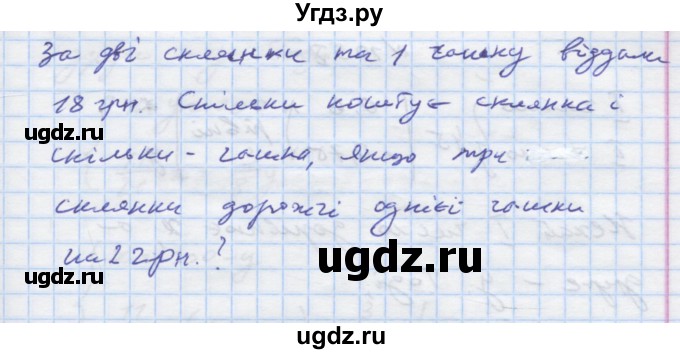 Угдз.ру
За дві склянки та 1 чашку віддали
18 грн. Скільки коштує склянка і
ugdz.ru ugdz.ru
скільки - чашка, якщо три
склянки дорожчі однієї чашки
на 2 грн.?
ugdz.ru ugdz.ru
ugdz.ru